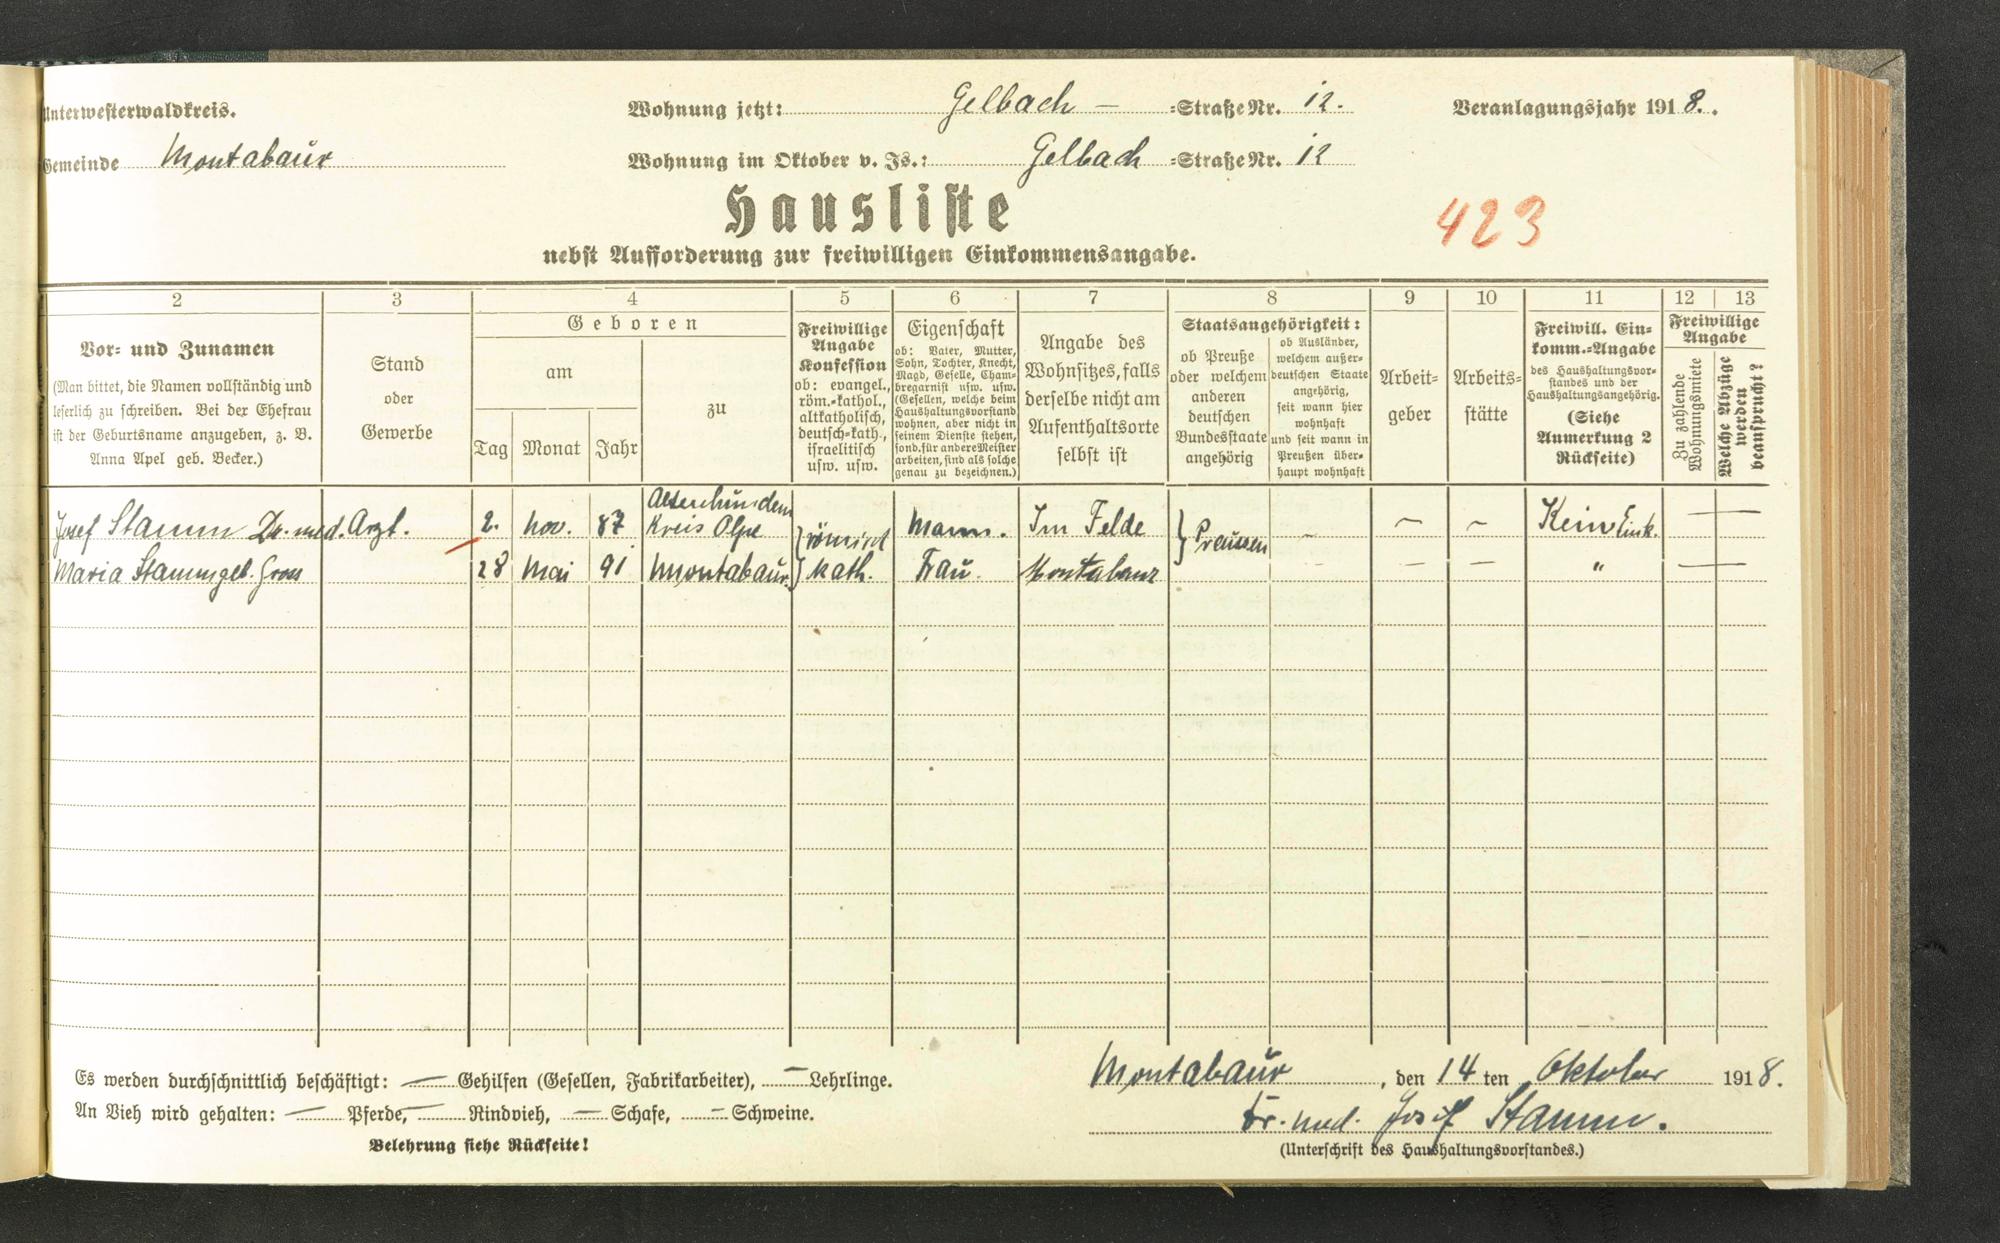 Unterwesterwaldkreis.
Wohnung jetzt: Gelbach - =Straße Nr. 12.
Veranlagungsjahr 1918..
Gemeinde Montabaur
Wohnung im Oktober v. Js.: Gelbach =Straße Nr. 12
Hausliste
423
nebst Aufforderung zur freiwilligen Einkommensangabe.
2 3 4 5 6 7 8 9 10 11 12 13
Vor- und Zunamen
(Man bittet, die Namen vollständig und
leserlich zu schreiben. Bei der Ehefrau
ist der Geburtsname anzugeben, z. B.
Anna Apel geb. Becker.)
Stand
oder
Gewerbe
Geboren
am
Tag Monat Jahr
zu
Freiwillige
Angabe
Konfession
ob: evangel.,
röm.-kathol.,
altkatholisch,
deutsch-kath.,
israelitisch
usw. usw.
Eigenschaft
ob: Vater, Mutter,
Sohn, Tochter, Knecht,
Magd, Geselle, Cham-
bregarnist usw. usw.
(Gesellen, welche beim
Haushaltungsvorstand
wohnen, aber nicht in
seinem Dienste stehen,
sond. für andere Meister
arbeiten, sind als solche
genau zu bezeichnen.)
Angabe des
Wohnsitzes, falls
derselbe nicht am
Aufenthaltsorte
selbst ist
Staatsangehörigkeit:
ob Preuße
oder welchem
anderen
deutschen
Bundesstaate
angehörig
ob Ausländer,
welchem außer-
deutschen Staate
angehörig,
seit wann hier
wohnhaft
und seit wann in
Preußen über-
haupt wohnhaft
Arbeit-
geber
Arbeits-
stätte
Freiwill. Ein-
komm.-Angabe
des Haushaltungsvor-
standes und der
Haushaltungsangehörig.
(Siehe
Anmerkung 2
Rückseite)
Freiwillige
Angabe
Zu zahlende
Wohnungsmiete
Welche Abzüge
werden
beansprucht?
Josef Stamm Dr. med. Arzt. 2. Nov. 87 Altenhundem
Kreis Olpe } römisch Mann. Im Felde } Preussen - - - Kein Eink. —
Maria Stamm geb. Gross 28 Mai 91 Montabaur. } kath. Frau. Montabaur - - - - " —
Es werden durchschnittlich beschäftigt: — Gehilfen (Gesellen, Fabrikarbeiter), — Lehrlinge.
An Vieh wird gehalten: — Pferde, — Rindvieh, — Schafe, — Schweine.
Belehrung siehe Rückseite!
Montabaur, den 14 ten Oktober 1918.
Dr. med. Josef Stamm.
(Unterschrift des Haushaltungsvorstandes.)